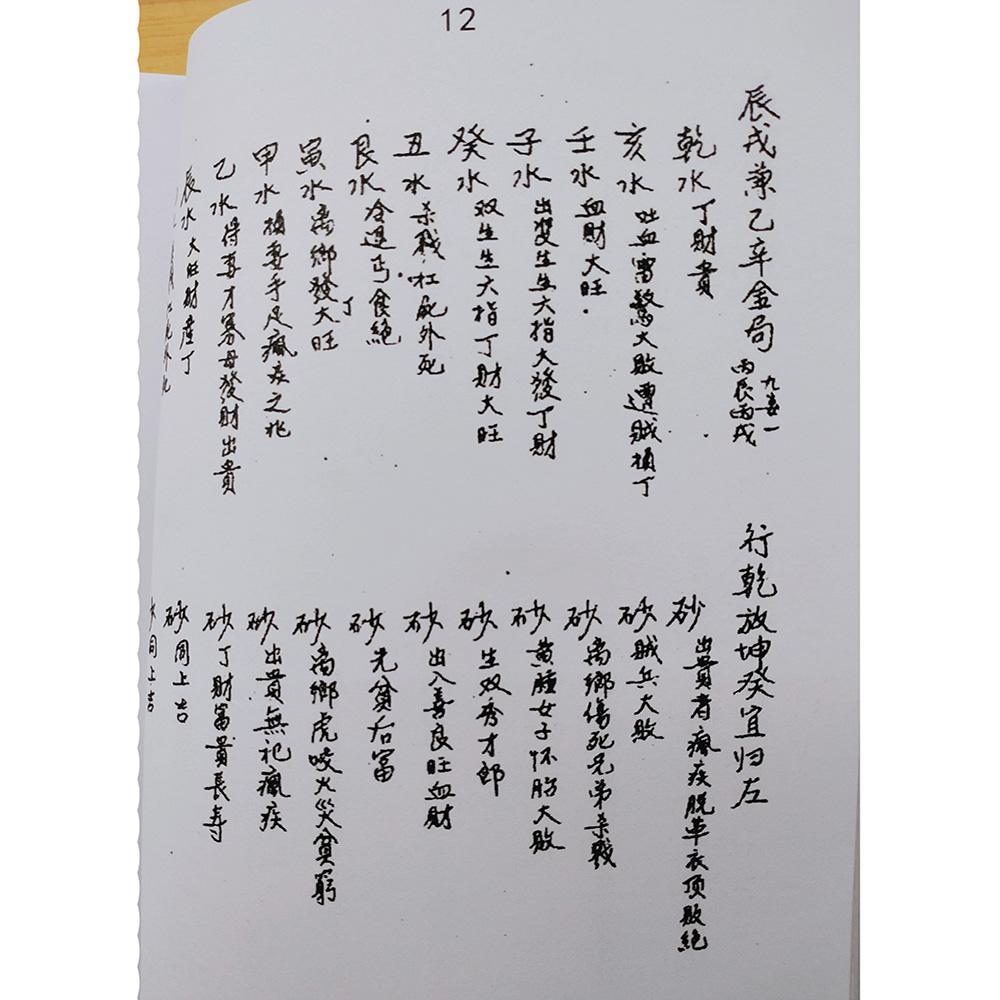 12
辰戌兼乙辛金局
丙辰丙戌
行乾放坤癸宜归左
乾水 丁財貴
砂 出貴者瘋疾脱革衣頂敗絕
亥水 吐血雷驚大敗遭贼損丁
砂 贼兵大敗
壬水 血財大旺
砂 离鄉傷死兄弟杀戮
子水 出雙生生六指大發丁財
砂 黄腫女子怀胎大敗
癸水 双生生六指丁財大旺
砂 生双秀才郎
丑水 杀戮杠死外死
砂 出入善良旺血財
艮水 冷退丐食絕
砂 先貧后富
寅水 离鄉發大旺丁
砂 离鄉虎咬火災貧窮
甲水 損妻手足瘋疾之兆
砂 出貴無祀瘋疾
乙水 得妻才寡母發財出貴
砂 丁財富貴長寿
辰水 大旺財產丁
砂 同上吉
同上吉